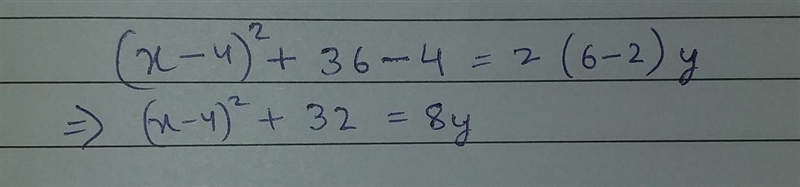 (x-4)² + 36-4 = 2 (6-2) y
⇒ (x-4)² + 32 = 8y